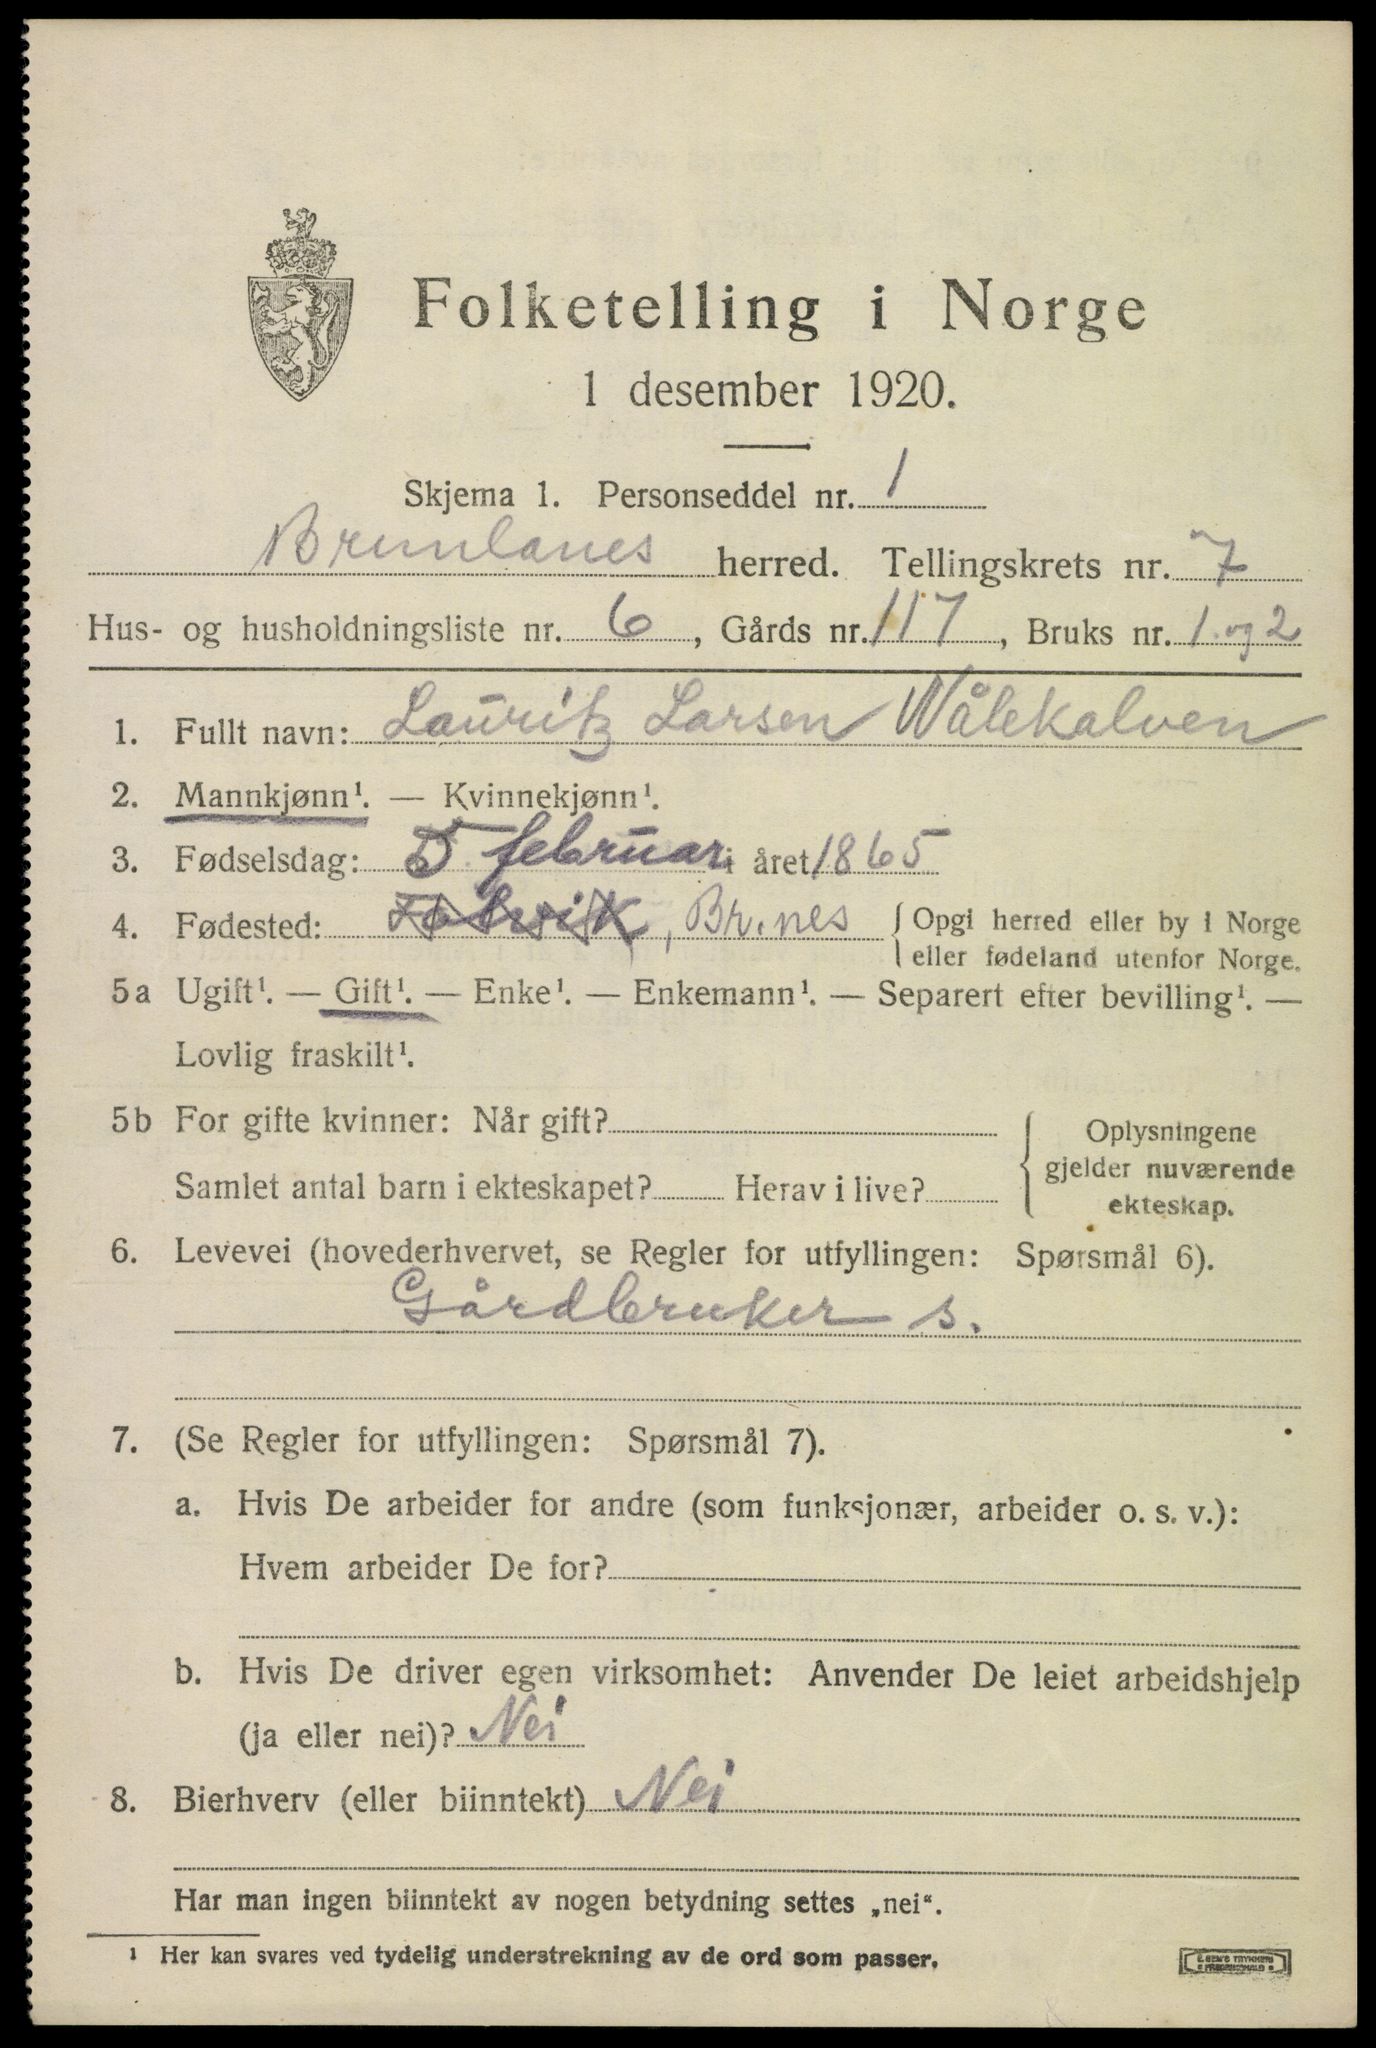 Folketelling i Norge
1 desember 1920.
Skjema 1. Personseddel nr. 1
Brunlanes herred. Tellingskrets nr. 7
Hus- og husholdningsliste nr. 6, Gårds nr. 117, Bruks nr. 1 og 2
1. Fullt navn: Lauritz Larsen Vålekalven
2. Mannkjønn¹. — Kvinnekjønn¹.
3. Fødselsdag: 5 februar i året 1865
4. Fødested: , Br.nes { Opgi herred eller by i Norge
eller fødeland utenfor Norge.
5a Ugift¹. — Gift¹. — Enke¹. — Enkemann¹. — Separert efter bevilling¹. —
Lovlig fraskilt¹.
5b For gifte kvinner: Når gift?
Samlet antal barn i ekteskapet? Herav i live?
Oplysningene
gjelder nuværende
ekteskap.
6. Levevei (hovederhvervet, se Regler for utfyllingen: Spørsmål 6).
Gårdbruker s.
7. (Se Regler for utfyllingen: Spørsmål 7).
a. Hvis De arbeider for andre (som funksjonær, arbeider o. s. v.):
Hvem arbeider De for?
b. Hvis De driver egen virksomhet: Anvender De leiet arbeidshjelp
(ja eller nei)? Nei
8. Bierhverv (eller biinntekt) Nei
Har man ingen biinntekt av nogen betydning settes „nei“.
¹ Her kan svares ved tydelig understrekning av de ord som passer.